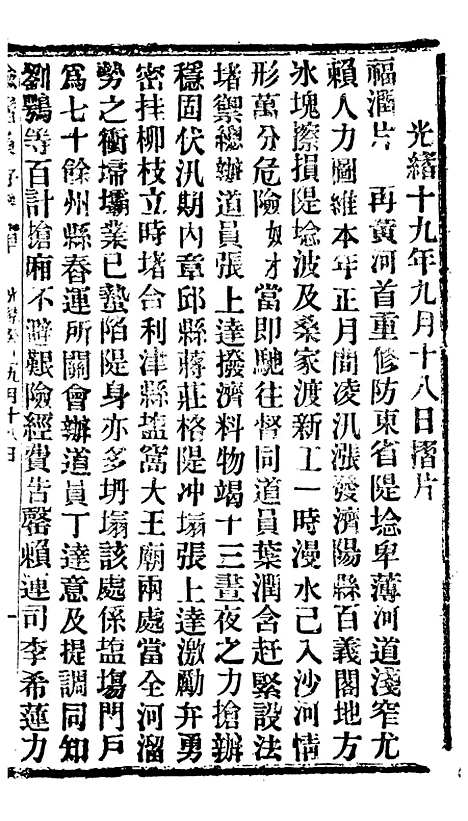 光緒十九年九月十八日摺片
福潤片　再黃河首重修防東省隄埝卑薄河道淺窄尤
賴人力圖維本年正月間凌汛漲發濟陽縣百義閣地方
冰塊擦損隄埝波及桑家渡新工一時漫水已入沙河情
形萬分危險奴才當即馳往督同道員葉潤含赶緊設法
堵禦總辦道員張上達撥濟料物竭十三晝夜之力搶辦
穩固伏汛期內章邱縣蔣莊格隄冲塌張上達激勵弁勇
密挂柳枝立時堵合利津縣塩窩大王廟兩處當全河溜
勢之衝埽壩業已蟄陷隄身亦多坍塌該處係塩塲門戶
為七十餘州縣春運所關會辦道員丁達意及提調同知
劉鶚等百計搶廂不避艱險經費告罄賴運司李希蓮力